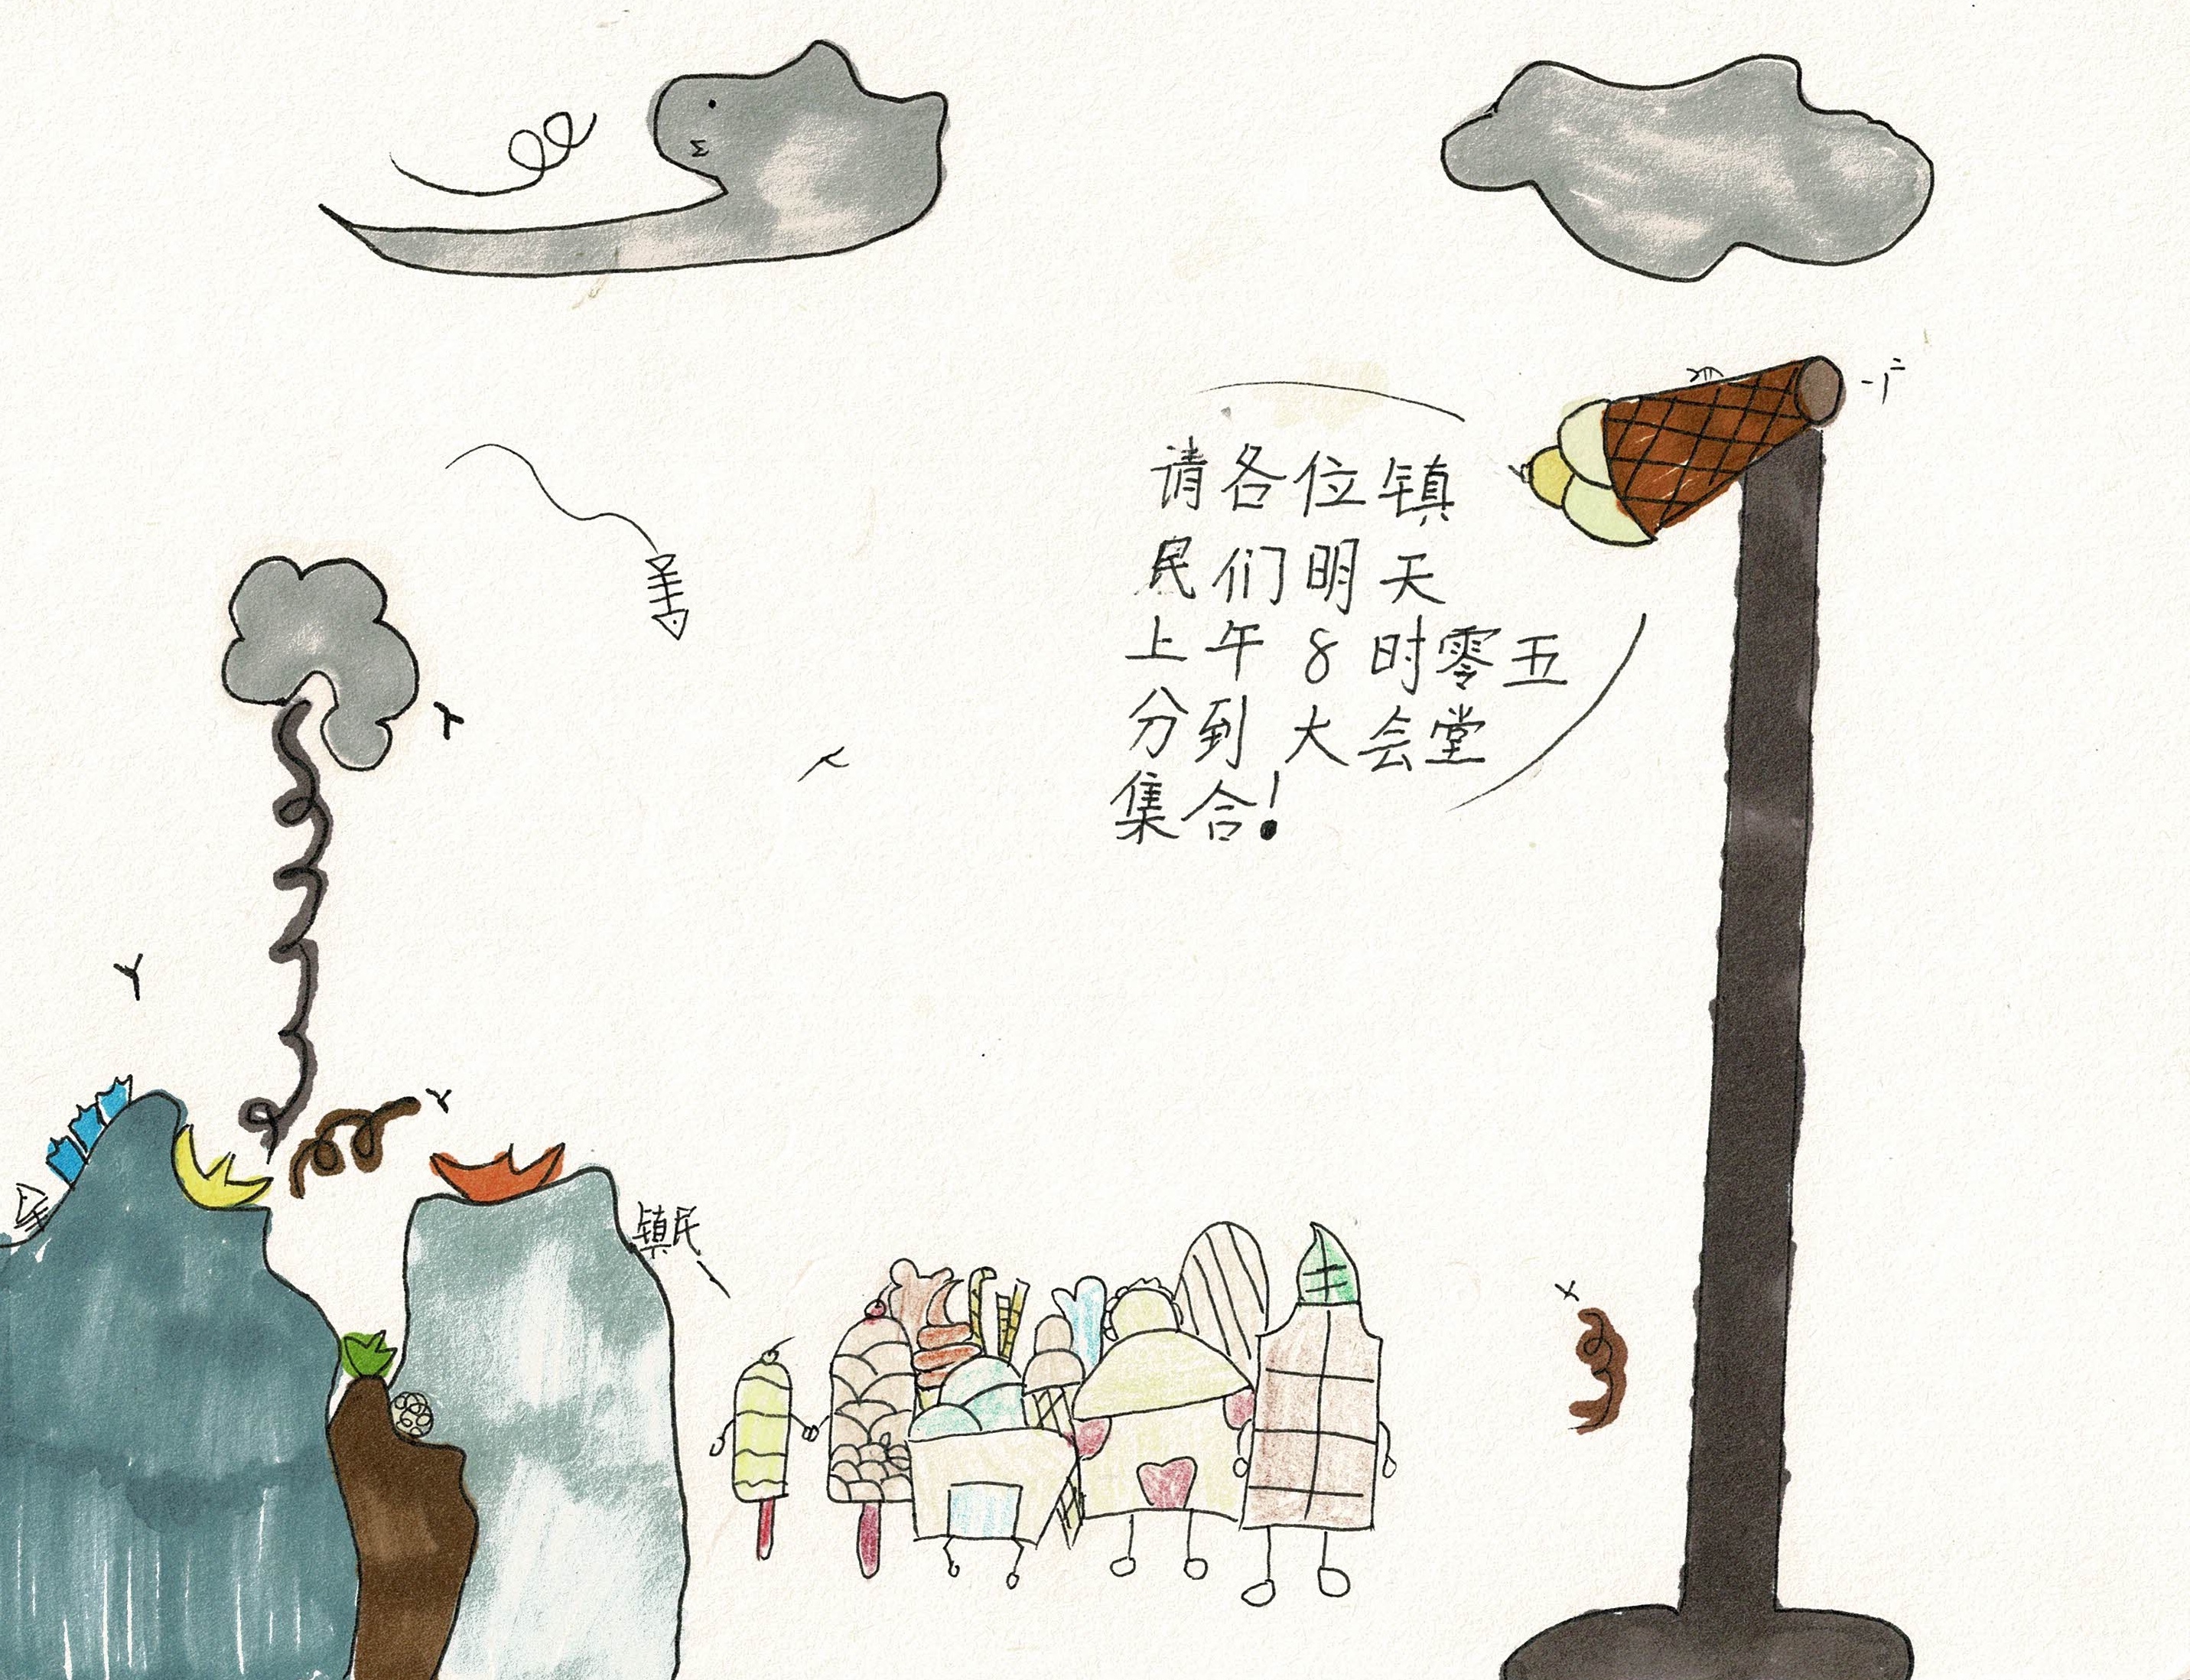 请各位镇
民们明天
上午8时零五
分到大会堂
集合!
镇民